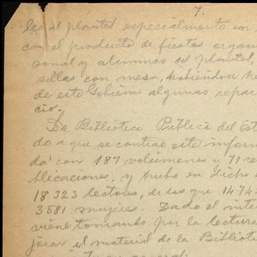 7.
les al plantel especialmente en
con el producto de fiestas organi
sonal y alumnos del plantel,
sillas con mesa, habiéndose he
de este Gobierno algunas repara
cio.
La Biblioteca Pública del Est
do a que se contrae este inform
da con 187 volúmenes y 71 re
blicaciones, y hubo en dicho
18 323 lectores, de los que 14 74
3581 mujeres. Dado el inte
viene tomando por la lectura
jorar el material de la Bibliote